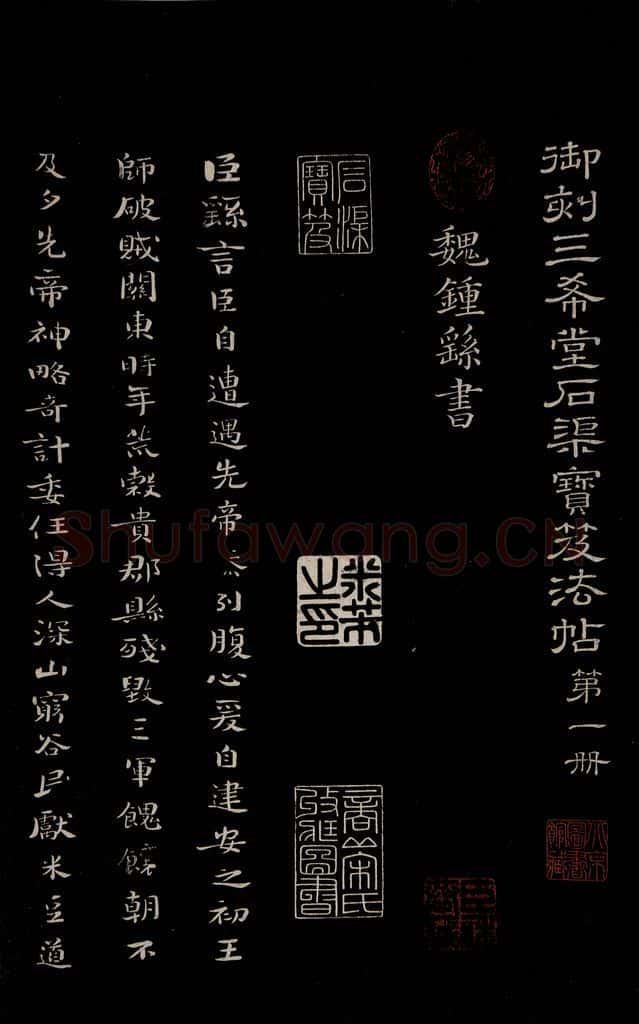 御刻三希堂石渠寶笈法帖第一册
魏鍾繇書
石渠寶笈
米芾之印
臣繇言臣自遭遇先帝忝列腹心爰自建安之初王
師破賊關東時年荒穀貴郡縣殘毀三軍餽饟朝不
及夕先帝神略奇計委任得人深山窮谷民獻米豆道
Shufawang.CN